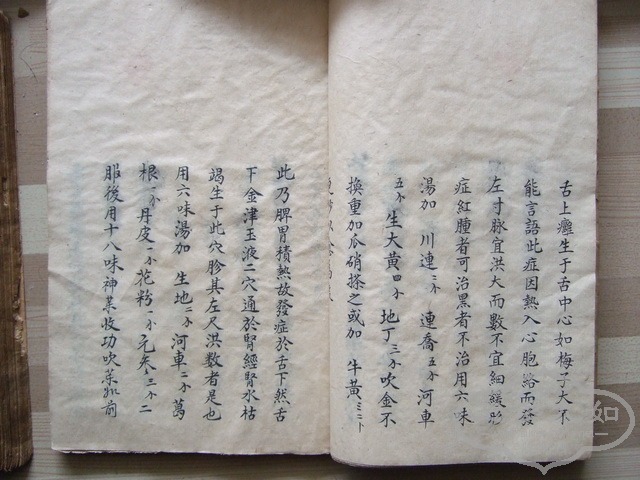 舌上癰生于舌中心如梅子大不
能言語此症因熱入心胞絡而發
左寸脉宜洪大而數不宜細緩形
症紅腫者可治黑者不治用六味
湯加 川連 連喬 河車
生大黃 地丁 吹金不
換重加瓜硝搽之或加 牛黃
此乃脾胃積熱故發症於舌下然舌
下金津玉液二穴通於腎經腎水枯
竭生于此穴胗其左尺洪數者是也
用六味湯加 生地 河車 萬
根 丹皮 花粉 元參
服後用十八味神藥收功吹藥如前